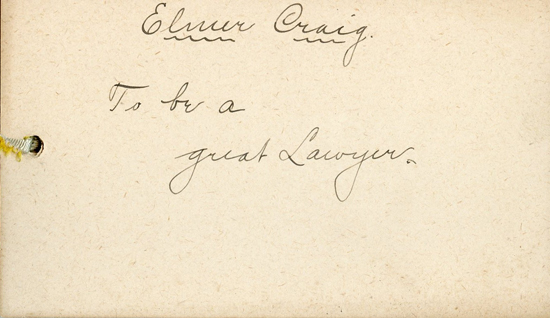 Elmer Craig.
To be a
great Lawyer.